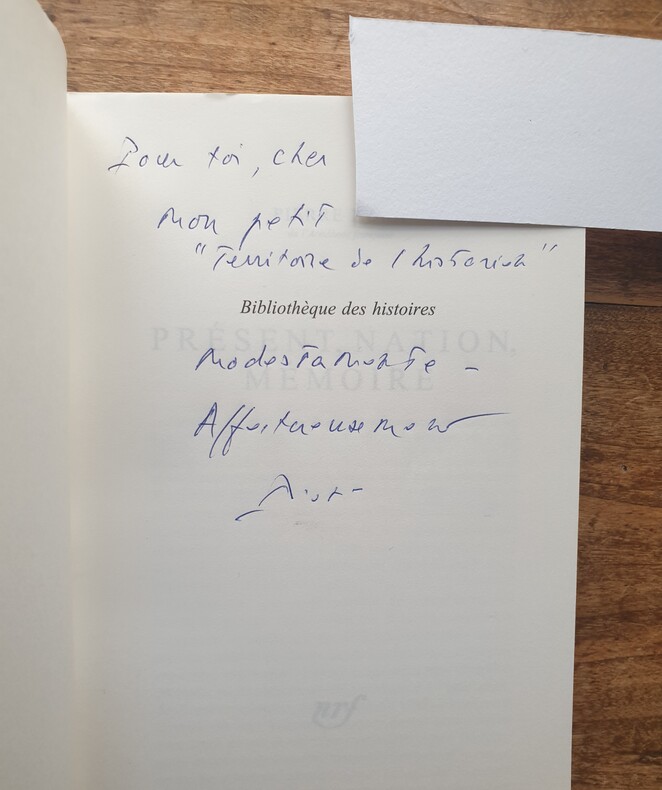 Pour toi, cher
mon petit
"Territoire de l'historien"
Bibliothèque des histoires
PRÉSENT, NATION,
MÉMOIRE
modestamente -
Affectueusement
nrf